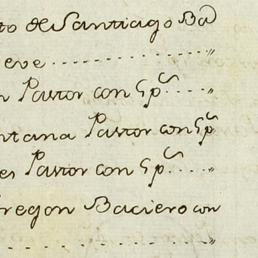 to de Santiago Ba
eve ........... "
n Pastor con Gp.s .... "
ntana Pastor con Gp.s
es Pastor con Gp.s .... "
regon Baciero con
.......... "